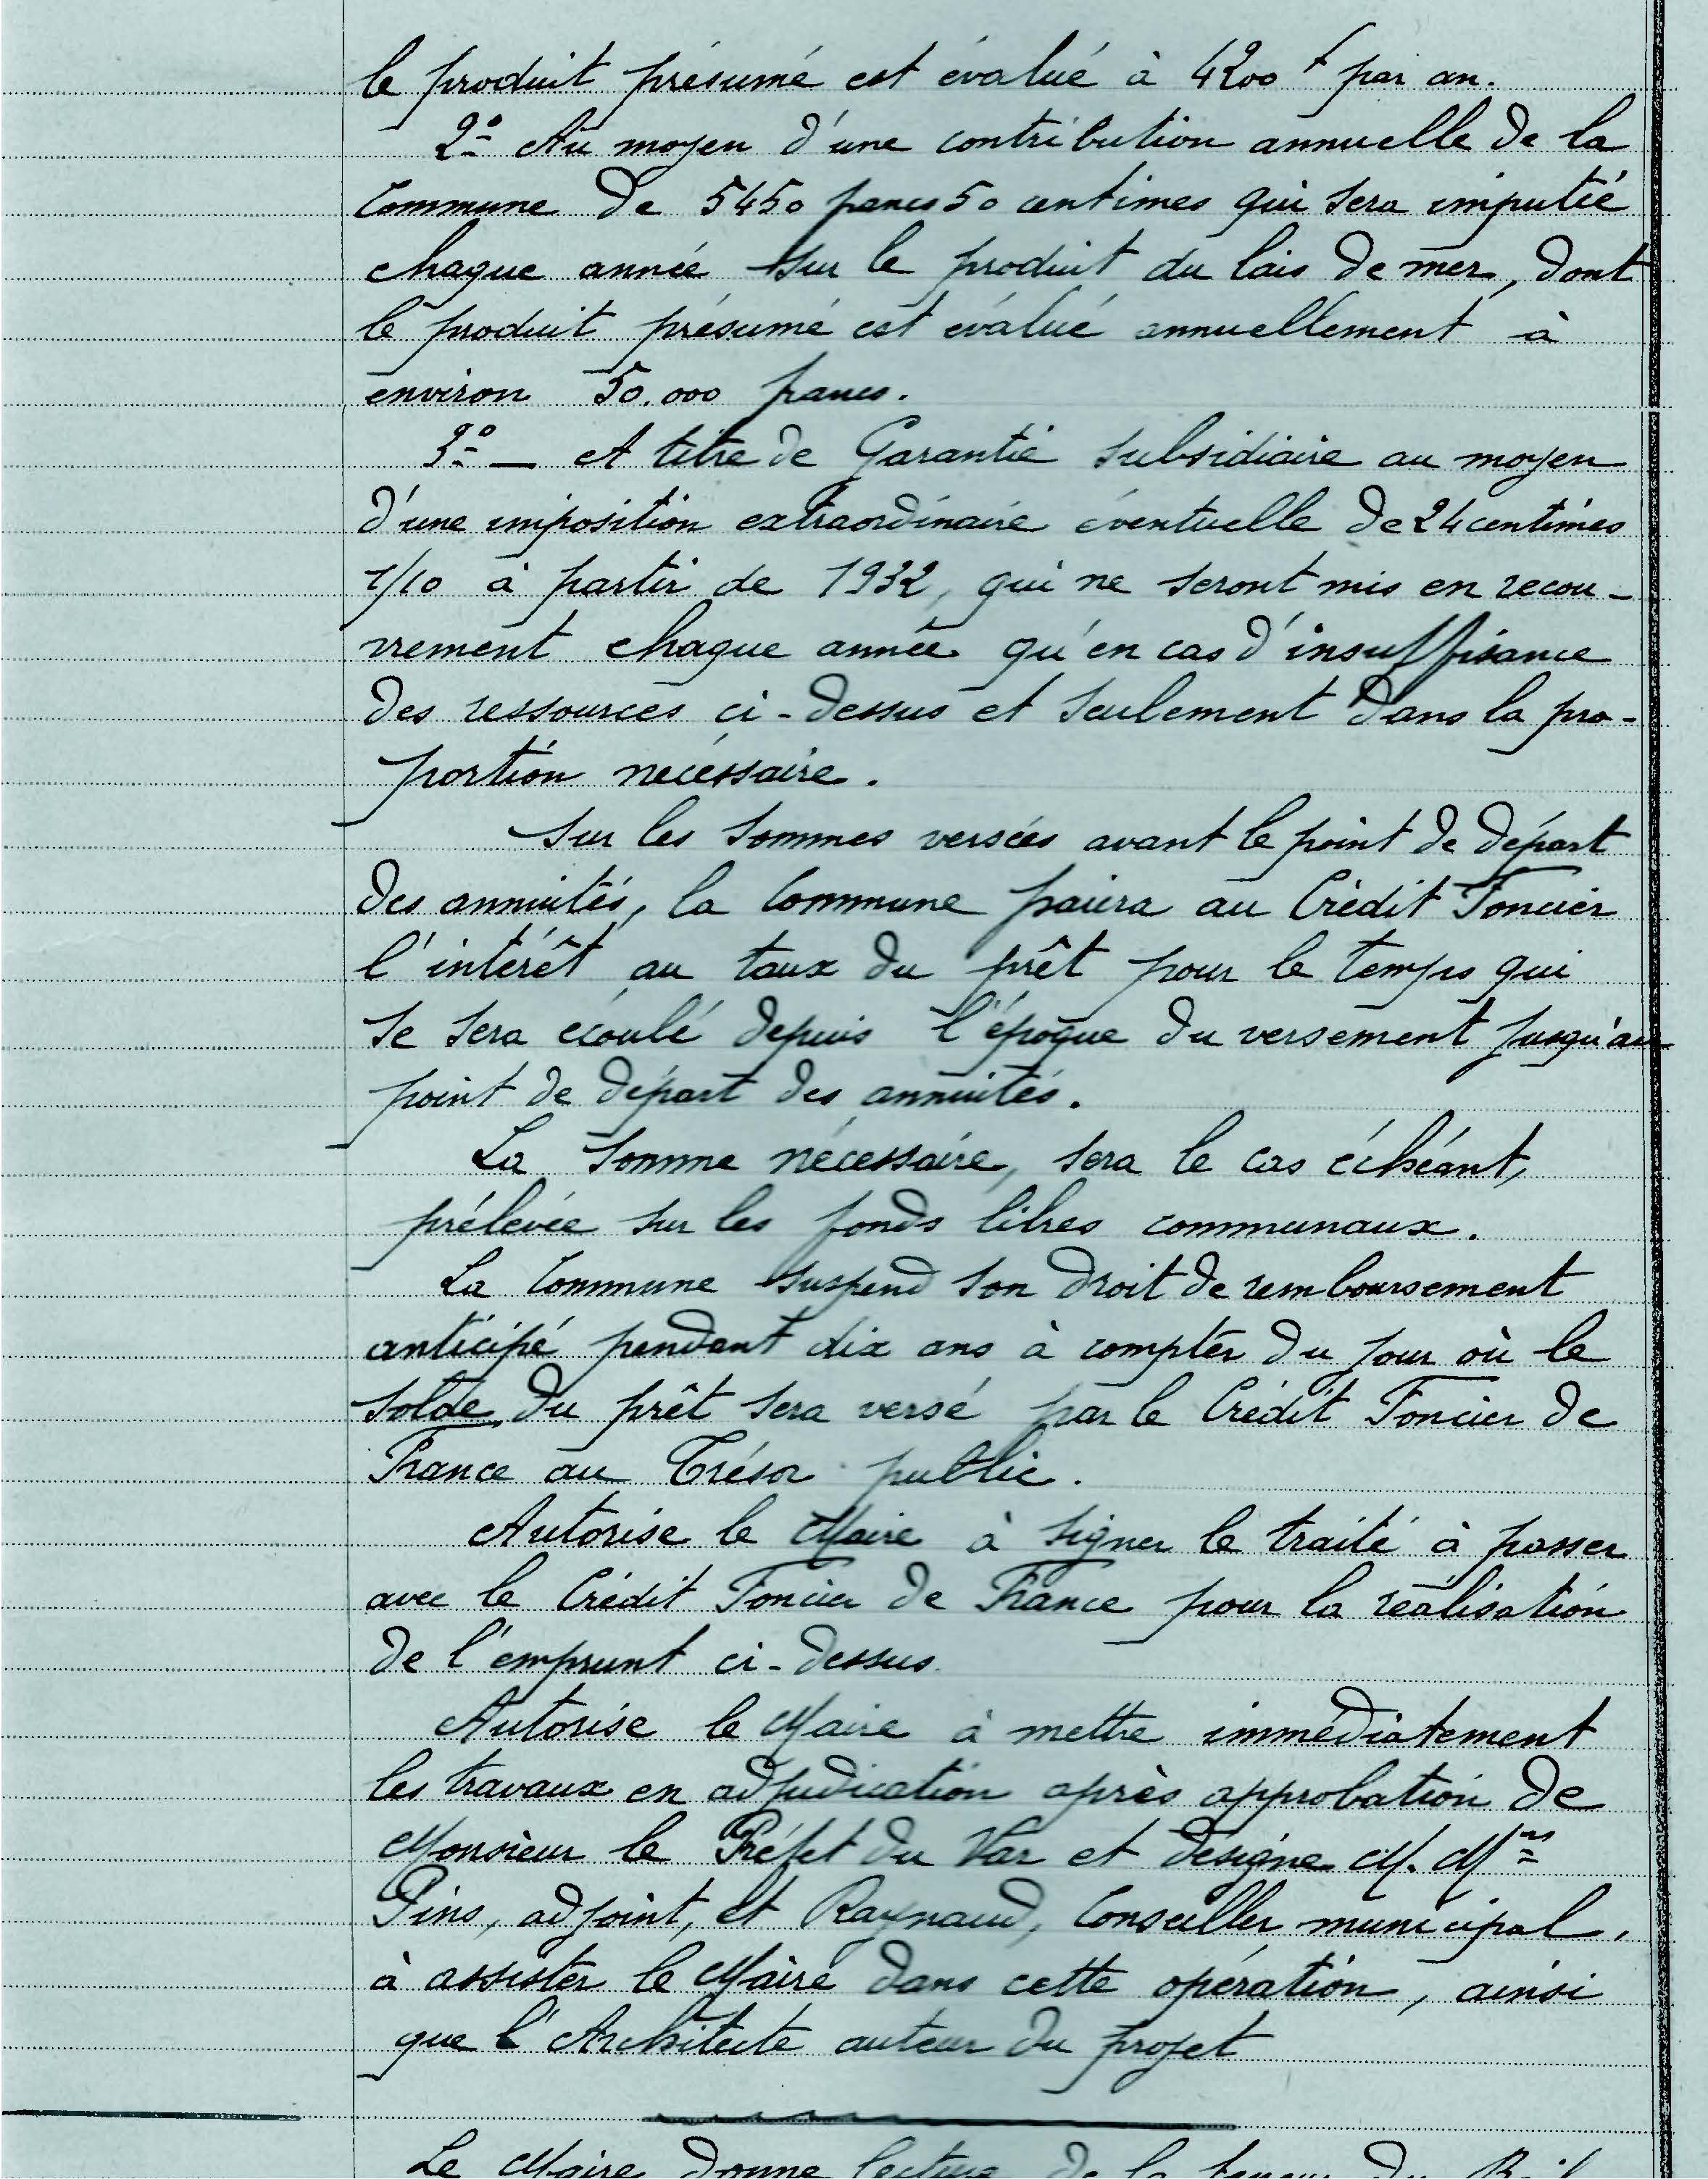 le produit présumé est évalué à 4200 f par an.
2º Au moyen d'une contribution annuelle de la
Commune de 5450 francs 50 centimes qui sera imputée
chaque année sur le produit du lais de mer, dont
le produit présumé est évalué annuellement à
environ 50.000 francs.
3º — A titre de Garantie subsidiaire au moyen
d'une imposition extraordinaire éventuelle de 24 centimes
1/10 à partir de 1932, qui ne seront mis en recou-
vrement chaque année qu'en cas d'insuffisance
des ressources ci-dessus et seulement dans la pro-
portion nécessaire.
Sur les sommes versées avant le point de départ
des annuités, la Commune paiera au Crédit Foncier
l'intérêt au taux du prêt pour le temps qui
se sera écoulé depuis l'époque du versement jusqu'au
point de départ des annuités.
La somme nécessaire, sera le cas échéant,
prélevée sur les fonds libres communaux.
La Commune suspend son droit de remboursement
anticipé pendant dix ans à compter du jour où le
solde du prêt sera versé par le Crédit Foncier de
France au Trésor public.
Autorise le Maire à signer le traité à passer
avec le Crédit Foncier de France pour la réalisation
de l'emprunt ci-dessus.
Autorise le Maire à mettre immédiatement
les travaux en adjudication après approbation de
Monsieur le Préfet du Var et désigne M. Mrs
Pins, adjoint, et Raynaud, Conseiller municipal,
à assister le Maire dans cette opération, ainsi
que l'Architecte auteur du projet
Le Maire donne lecture de la teneur du